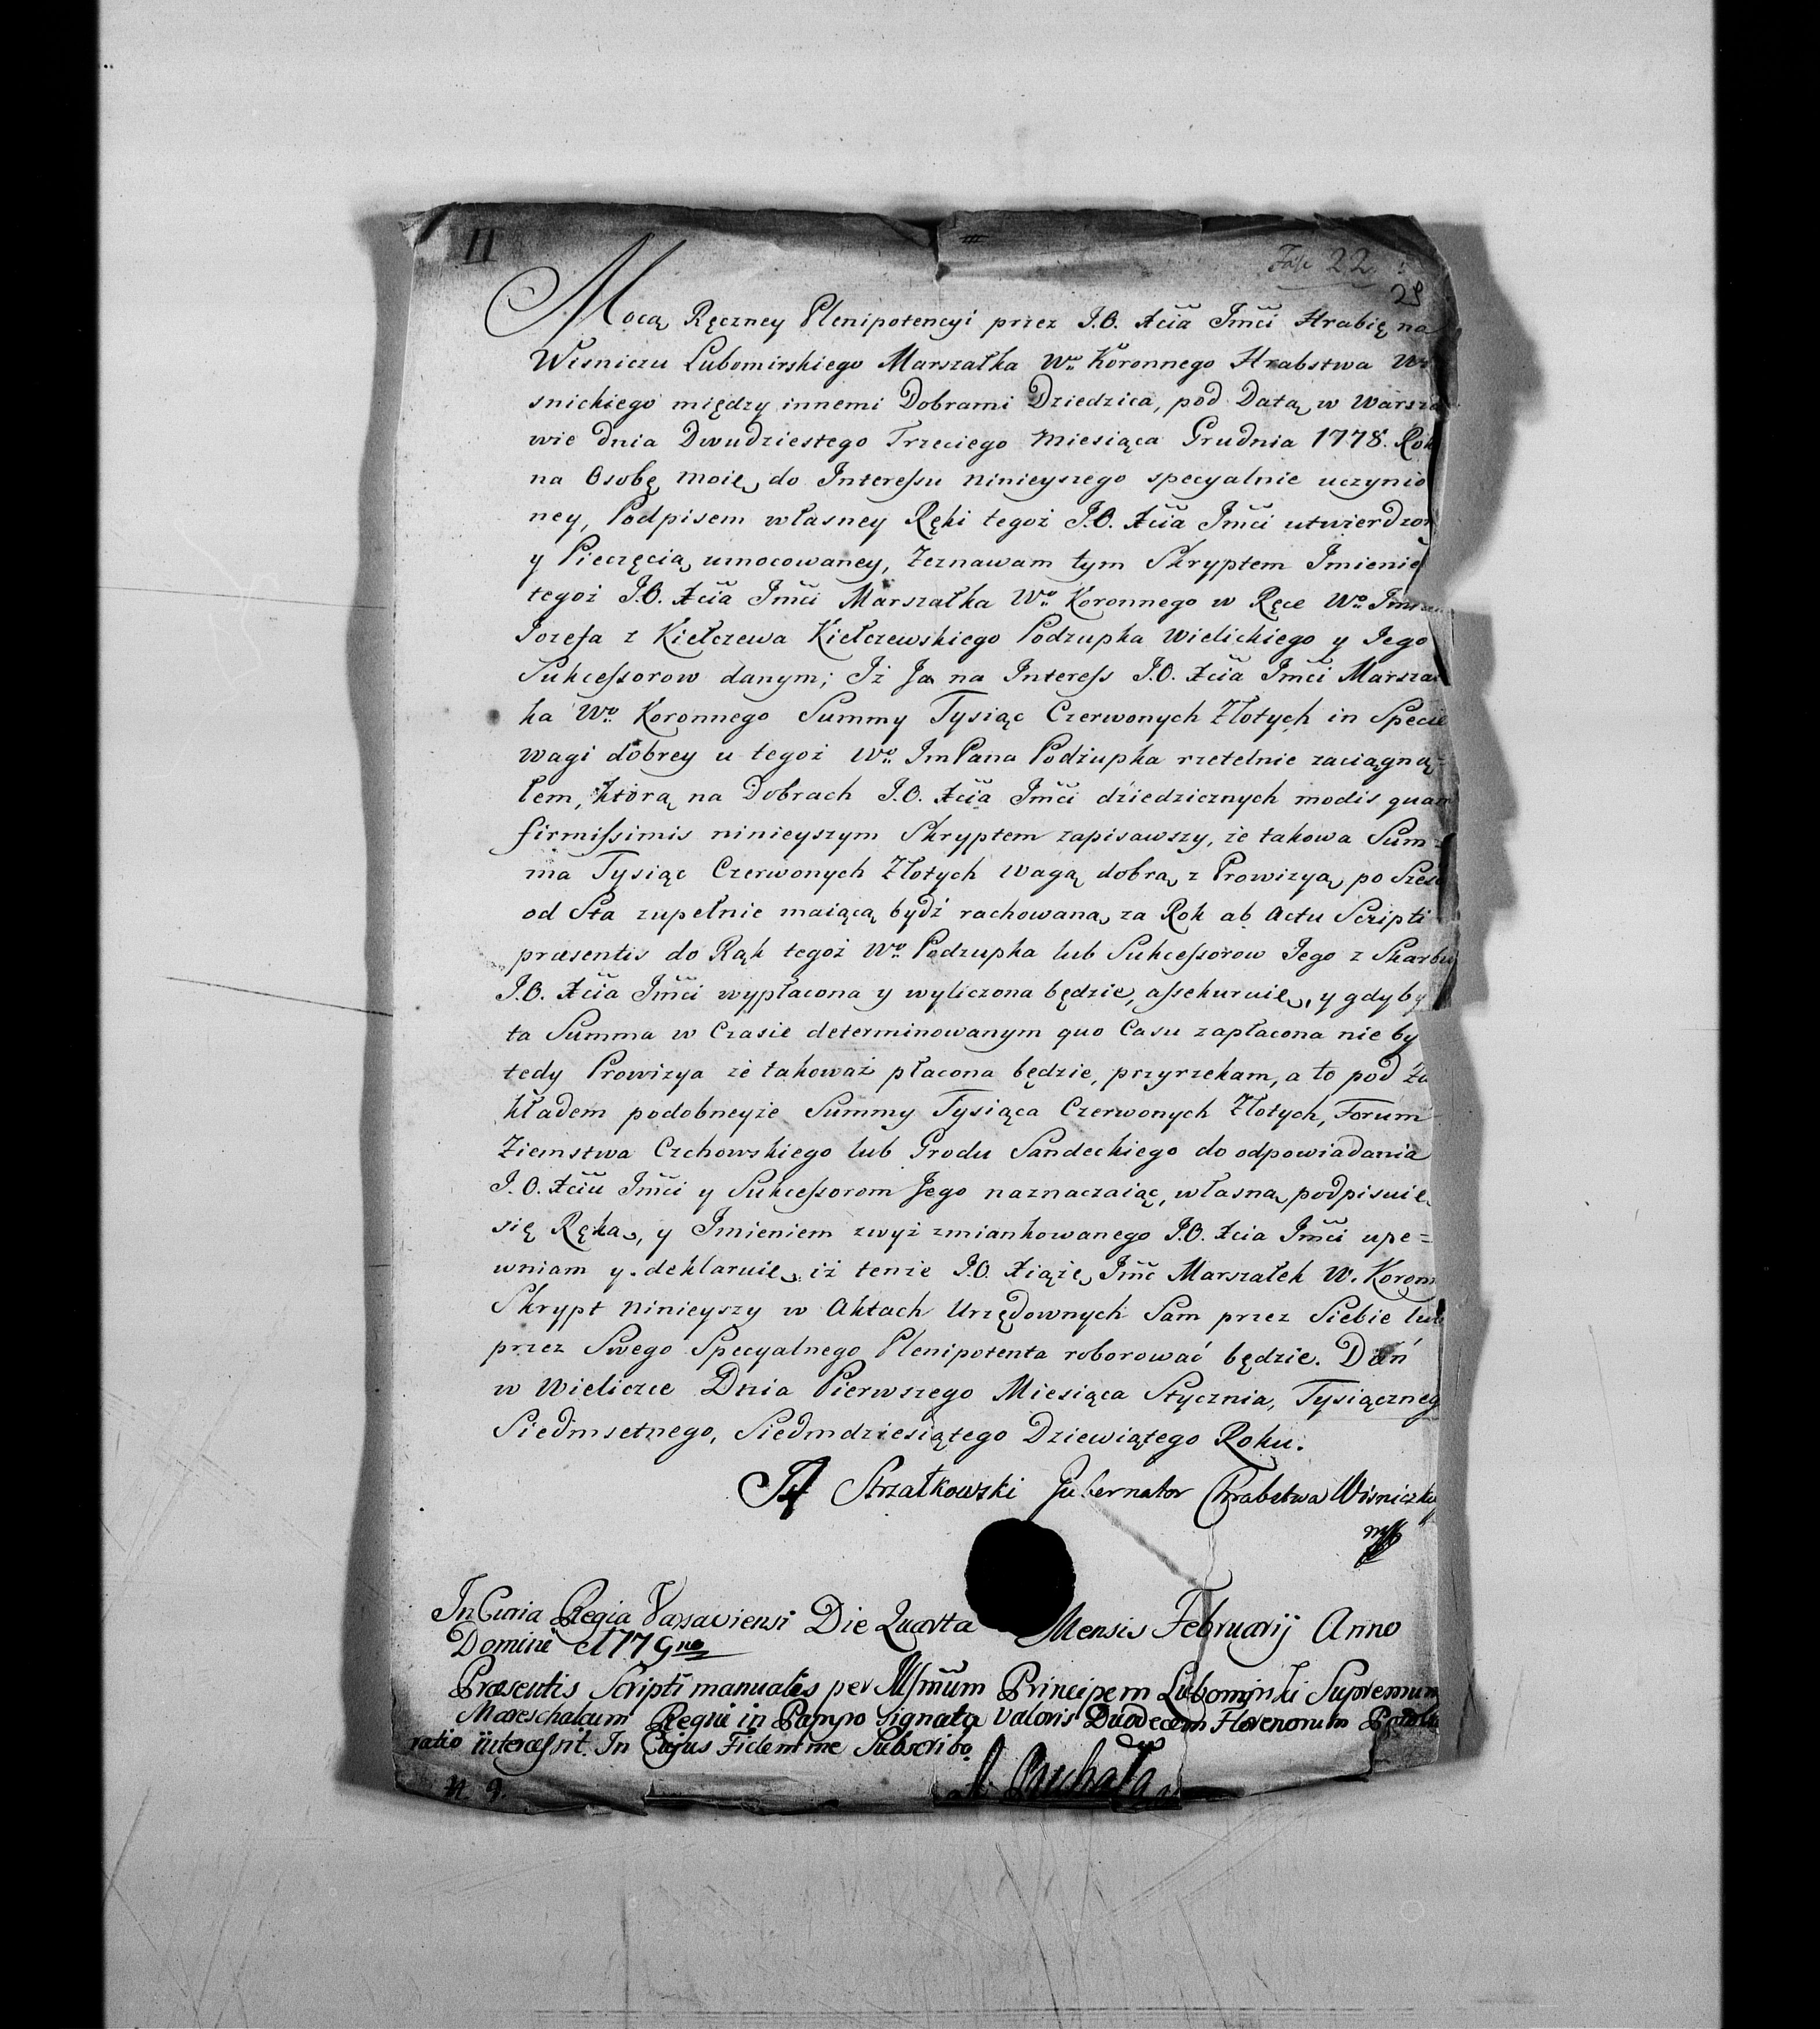 11
Fasc 22
29
Mocą Ręczney Plenipotencyi przez J.O. Xcia Jmci Hrabię na
Wisniczu Lubomirskiego Marszałka Wo Koronnego Hrabstwa Wi
snickiego między innemi Dobrami Dziedzica, pod Datą w Warsza
wie dnia Dwudziestego Trzeciego Miesiąca Grudnia 1778. Rok
na Osobę moię do Interessu ninieyszego specyalnie uczynio
ney, Podpisem własney Ręki tegoż J.O. Xcia Jmci utwierdzon
y Pieczęcią umocowaney, Zeznawam tym Skryptem Jmienie
tegoż J.O. Xcia Jmci Marszałka Wo Koronnego w Ręce Wo Jmci
Jozefa z Kiełczewa Kiełczewskiego Podzupka Wielickiego y Jego
Sukcessorow danym; Jż Ja na Interess J.O. Xcia Jmci Marszał
ka Wo Koronnego Summy Tysiąc Czerwonych Złotych in Specie
wagi dobrey u tegoż Wo JmPana Podżupka rzetelnie zaciągną=
łem, którą na Dobrach J.O. Xcia Jmci dziedzicznych modis quam
firmissimis ninieyszym Skryptem zapisawszy, że takowa Sum=
ma Tysiąc Czerwonych Złotych Wagą dobrą z Prowizyą po Sześć
od Sta zupełnie maiącą bydź rachowaną za Rok ab Actu Scripti
præsentis do Rąk tegoż Wo Podzupka lub Sukcessorow Jego z Skarbu
J.O. Xcia Jmci wypłacona y wyliczona będzie, assekuruię, y gdyby
ta Summa w Czasie determinowanym quo Casu zapłacona nie by
tedy Prowizya że takoważ płacona będzie, przyrzekam, a to pod Za
kładem podobneyże Summy Tysiąca Czerwonych Złotych, Forum
Ziemstwa Czchowskiego lub Grodu Sandeckiego do odpowiadania
J.O. Xciu Jmci y Sukcessorom Jego naznaczaiąc, własną podpisuię
się Ręką, y Jmieniem zwyż zmiankowanego J.O. Xcia Jmci upe=
wniam y deklaruię, iż tenże J.O. Xiąże Jmc Marszałek W. Koronn
Skrypt ninieyszy w Aktach Urzędownych Sam przez Siebie lub
przez Swego Specyalnego Plenipotenta roborować będzie. Dań
w Wieliczce Dnia Pierwszego Miesiąca Stycznia, Tysiączneg
Siedmsetnego, Siedmdziesiątego Dziewiątego Roku.
Strzałkowski Gubernator Chrabstwa Wisniczky
mp
In Curia Regia Varsaviensi Die Quarta Mensis Februarij Anno
Domini 1779no
Præsentis Scripti manualis per Illsmum Principem Lubomirski Supremum
Mareschalcum Regni in Papyro Signata Valoris Duodecem Florenorum Robo
ratio intercessit. In Cujus Fidem me Subscribo
N 9.